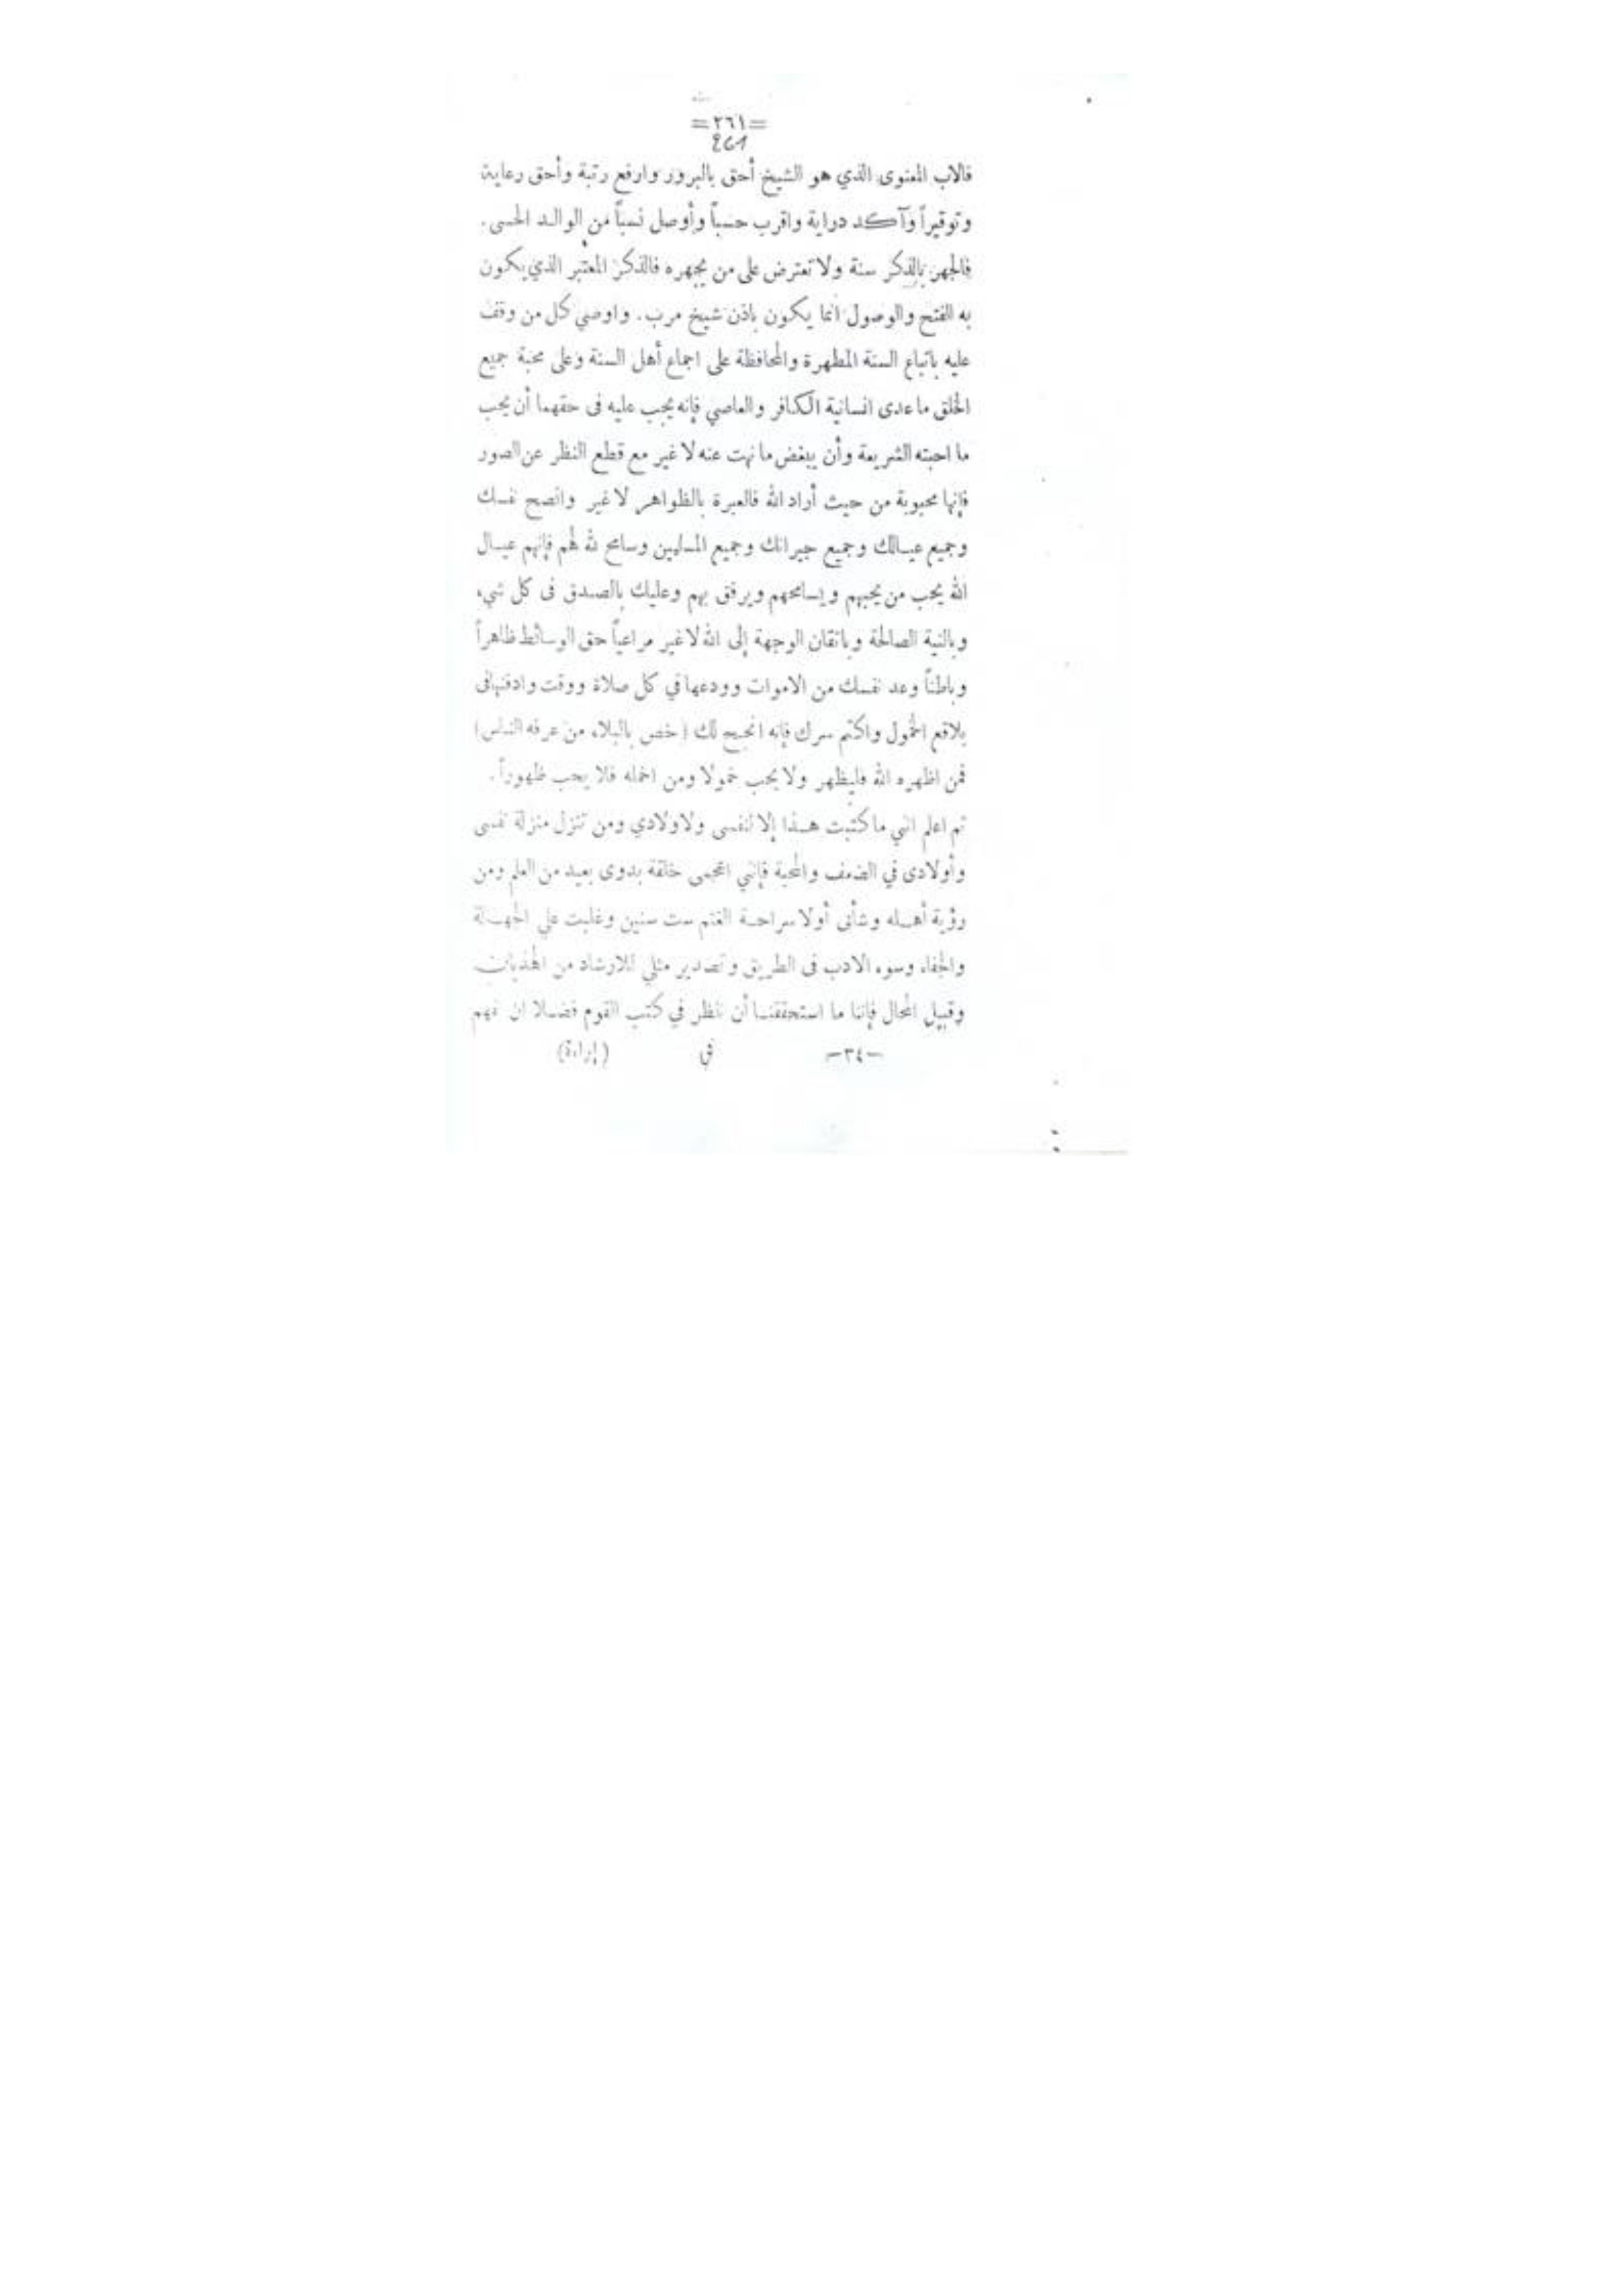 =٢٦١=
فالاب المعنوى الذي هو الشيخ أحق بالبرور وارفع رتبة وأحق رعاية
وتوقيراً وآكد دراية واقرب حسباً وأوصل نسباً من الوالد الحسى.
فالجهر بالذكر سنة ولا تعترض على من يجهره فالذكر المعتبر الذي يكون
به الفتح والوصول انما يكون باذن شيخ مرب. واوصي كل من وقف
عليه باتباع السنة المطهرة والمحافظة على اجماع أهل السنة وعلى محبة جميع
الخلق ما عدى انسانية الكافر والعاصي فإنه يجب عليه فى حقهما أن يحب
ما احبته الشريعة وأن يبغض ما نهت عنه لا غير مع قطع النظر عن الصور
فإنها محبوبة من حيث أراد الله فالعبرة بالظواهر لا غير وانصح نفسك
وجميع عيالك وجميع جيرانك وجميع المسلمين وسامح لله لهم فإنهم عيال
الله يحب من يحبهم ويسامحهم ويرفق بهم وعليك بالصدق فى كل شيء
وبالنية الصالحة وباتقان الوجهة إلى الله لا غير مراعياً حق الوسائط ظاهراً
وباطناً وعد نفسك من الاموات وودعها في كل صلاة ووقت وادفنها فى
بلاقع الخمول واكتم سرك فإنه انجح لك (خص بالبلاء من عرفه الناس)
فمن اظهره الله فليظهر ولا يحب خمولا ومن اخمله فلا يحب ظهوراً.
ثم اعلم انى ما كتبت هذا إلا لنفسى ولاولادي ومن تنزل منزلة نفسى
وأولادى في الضعف والمحبة فإنني اعجمى خلقة بدوى بعيد من العلم ومن
رؤية أهله وشأنى أولا سراحة الغنم ست سنين وغلبت علي الجهالة
والجفاء وسوء الادب فى الطريق وتصدير مثلي للارشاد من الهذيان
وقبيل المحال فإننا ما استحققنا أن ننظر في كتب القوم فضلا ان نفهم
—٣٤— فى (إراءة)